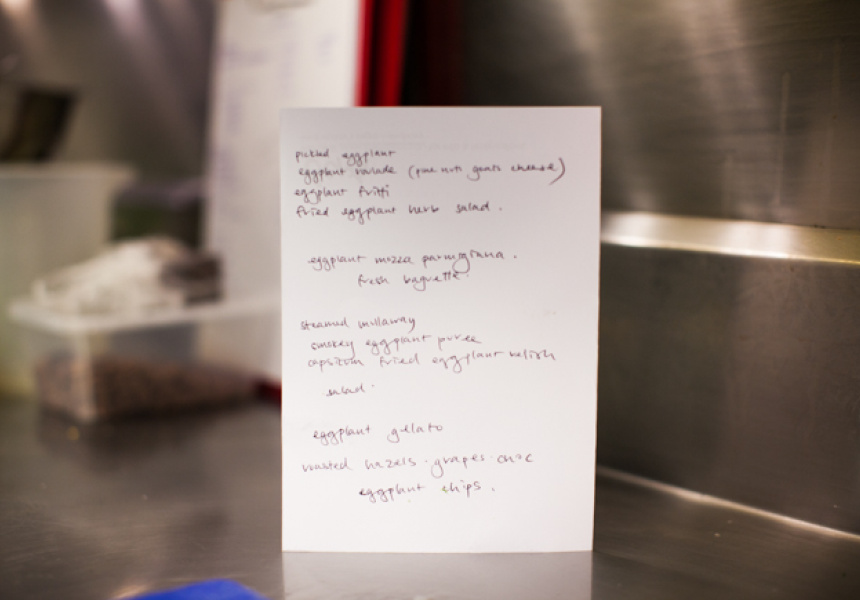 pickled eggplant
eggplant roulade (pine nuts goats cheese)
eggplant fritti
fried eggplant herb salad .
eggplant mozza parmigiana .
fresh baguette .
steamed mulloway
smokey eggplant puree
capsicum fried eggplant relish
salad .
eggplant gelato
roasted hazels . grapes . choc
eggplant chips .